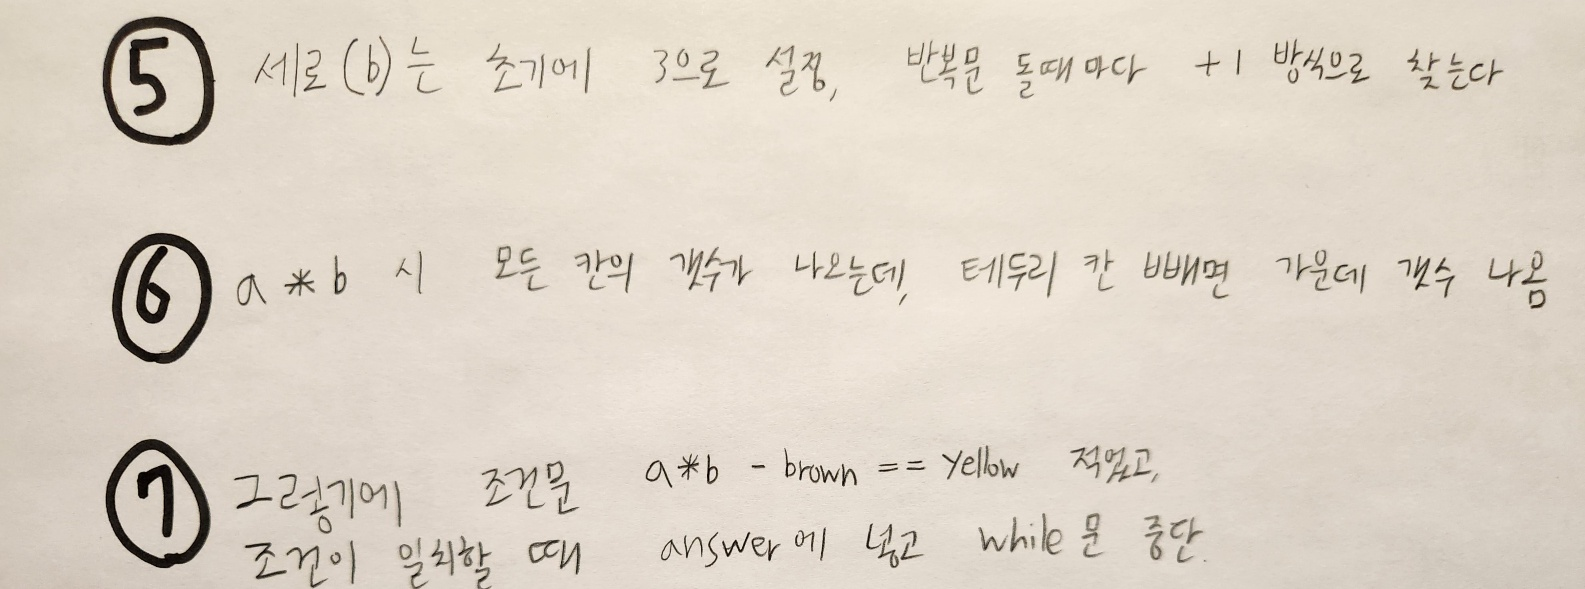 ⑤ 세로(b)는 초기에 3으로 설정, 반복문 돌때마다 +1 방식으로 찾는다
⑥ a*b 시 모든 칸의 갯수가 나오는데, 테두리 칸 빼면 가운데 갯수 나옴
⑦ 그렇기에 조건문 a*b - brown == yellow 적었고,
조건이 일치할 때 answer에 넣고 while문 중단.